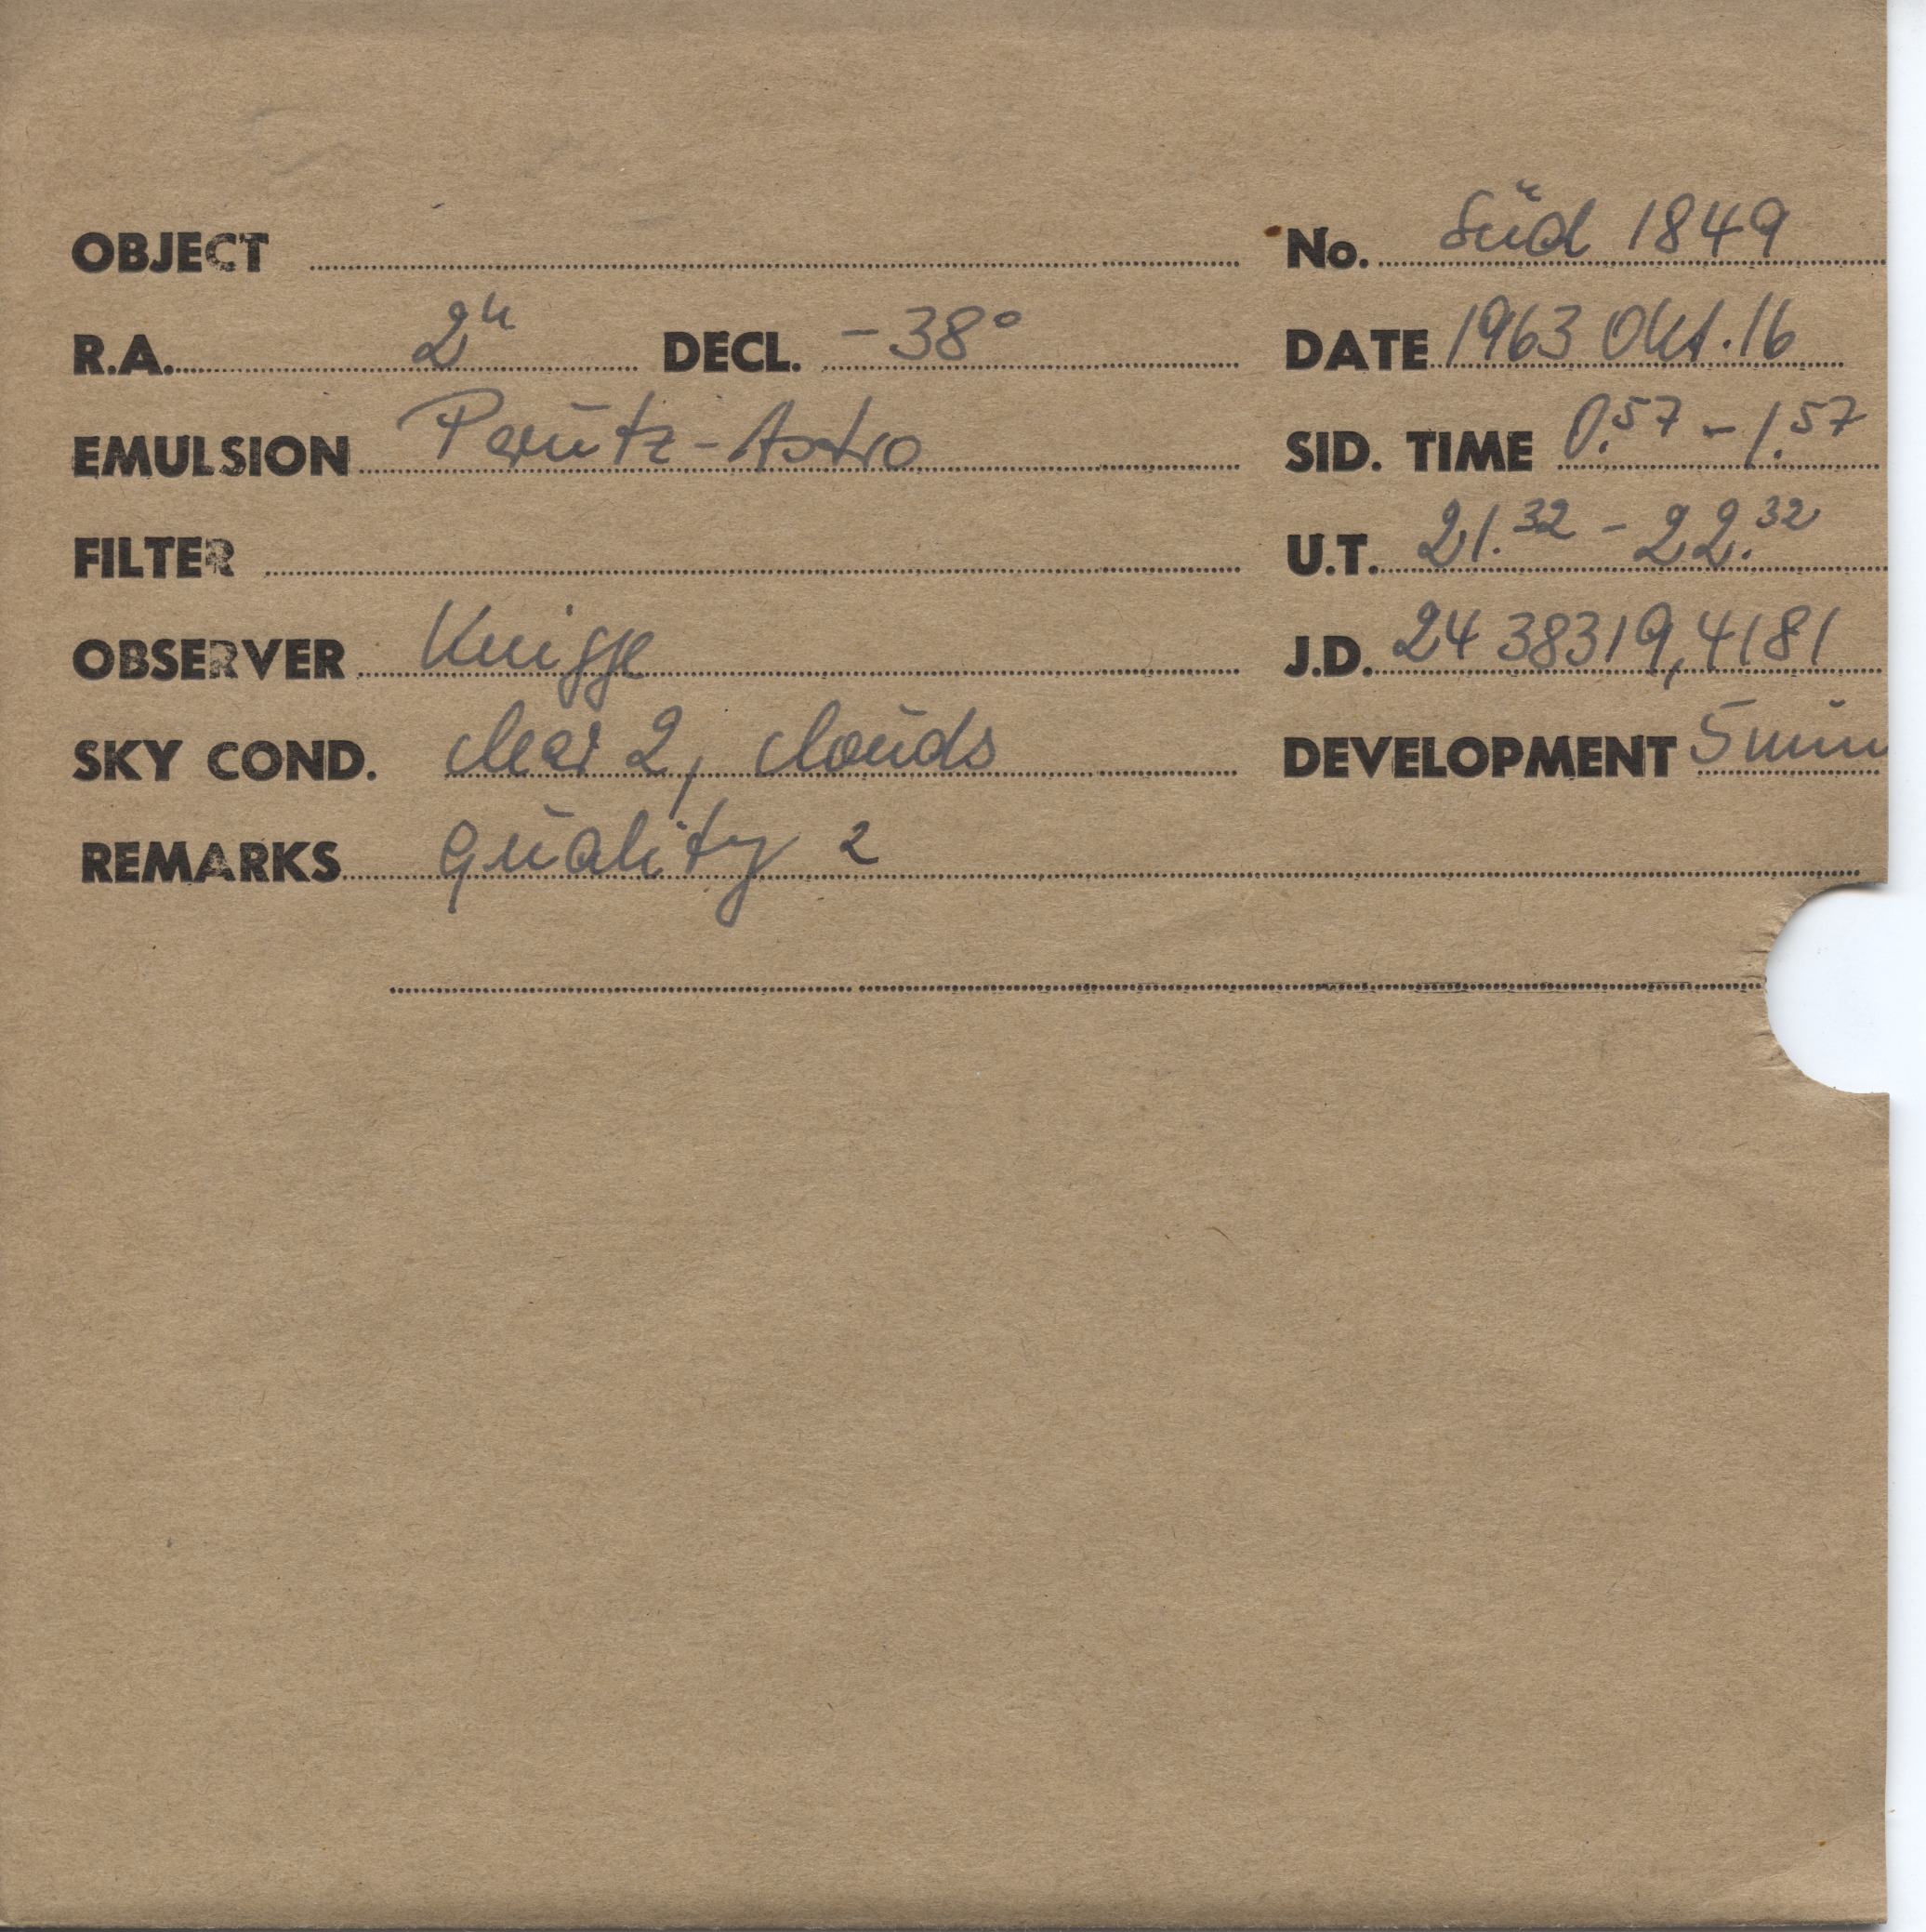 OBJECT No. Süd 1849
R.A. 2h DECL. -38° DATE 1963 Okt. 16
EMULSION Perutz-Astro SID. TIME 0.57 - 1.57
FILTER U.T. 21.32 - 22.32
OBSERVER Knigge J.D. 24 38319,4181
SKY COND. clear 2, clouds DEVELOPMENT 5 min
REMARKS quality 2